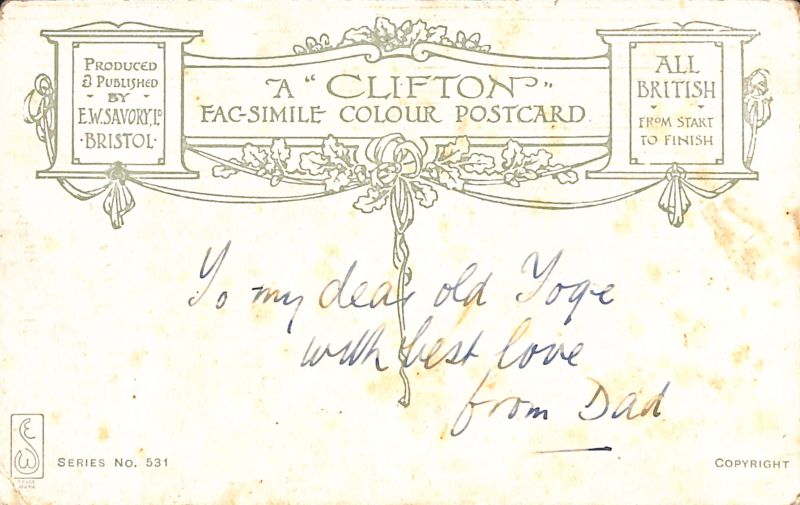 PRODUCED
& PUBLISHED
BY
E.W. SAVORY, Lᴰ
·BRISTOL·
A "CLIFTON"
FAC-SIMILE COLOUR POSTCARD
ALL
BRITISH
FROM START
TO FINISH
To my dear old Yoge
with best love
from Dad
ESW
TRADE
MARK
SERIES NO. 531
COPYRIGHT